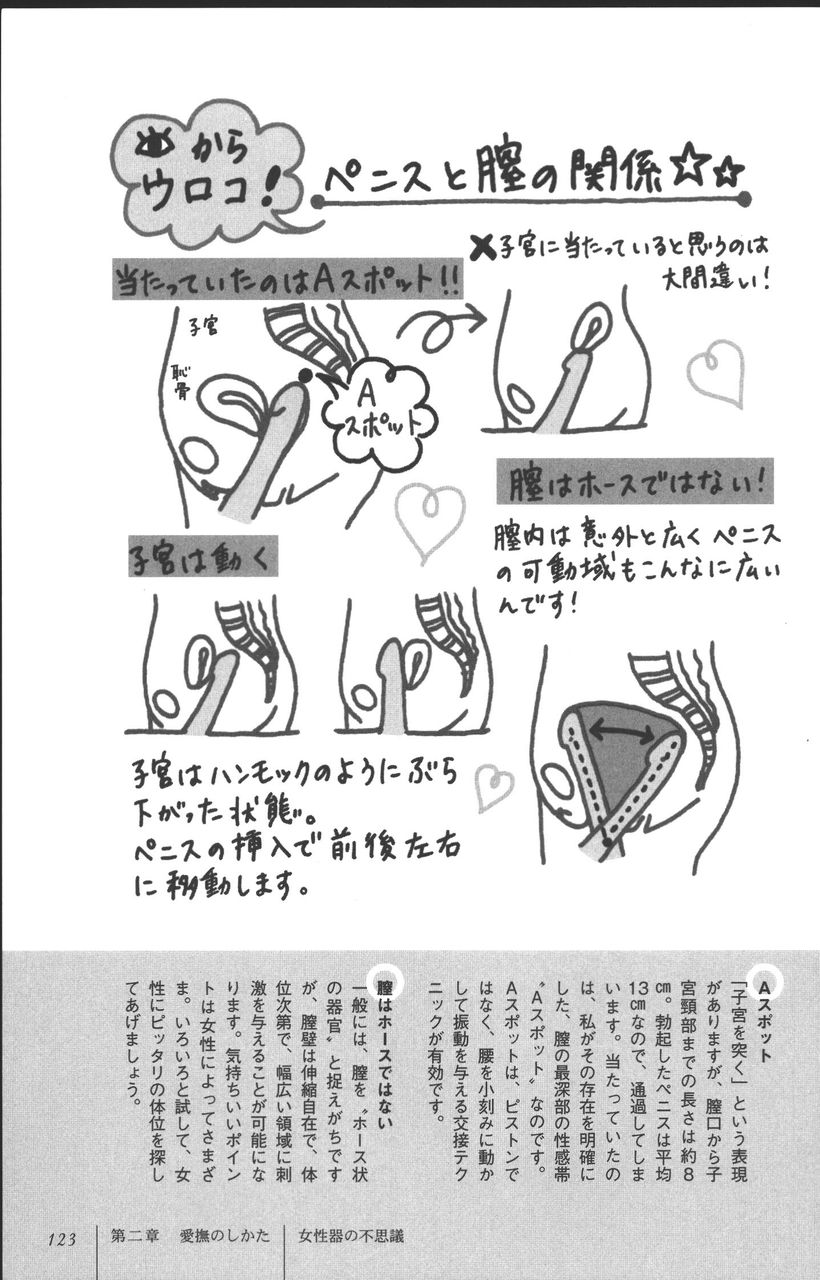 からウロコ!
ペニスと膣の関係☆☆
当たっていたのはAスポット!!
✖子宮に当たっていると思うのは
大間違い!
子宮
恥骨
A
スポット
膣はホースではない!
膣内は意外と広くペニス
の可動域もこんなに広い
んです!
子宮は動く
子宮はハンモックのようにぶら
下がった状態。
ペニスの挿入で前後左右
に移動します。
Aスポット
「子宮を突く」という表現
がありますが、膣口から子
宮頸部までの長さは約8
cm。勃起したペニスは平均
13cmなので、通過してしま
います。当たっていたの
は、私がその存在を明確に
した、膣の最深部の性感帯
〝Aスポット〟なのです。
Aスポットは、ピストンで
はなく、腰を小刻みに動か
して振動を与える交接テク
ニックが有効です。
膣はホースではない
一般には、膣を〝ホース状
の器官〟と捉えがちです
が、膣壁は伸縮自在で、体
位次第で、幅広い領域に刺
激を与えることが可能にな
ります。気持ちいいポイン
トは女性によってさまざ
ま。いろいろと試して、女
性にピッタリの体位を探し
てあげましょう。
123
第二章 愛撫のしかた
女性器の不思議